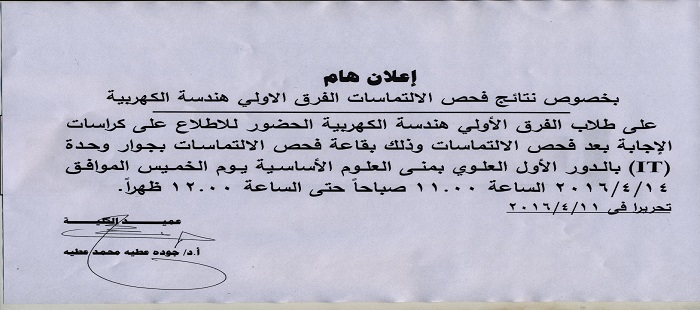 إعلان هام
بخصوص نتائج فحص الالتماسات الفرق الاولي هندسة الكهربية
على طلاب الفرق الأولي هندسة الكهربية الحضور للاطلاع على كراسات
الإجابة بعد فحص الالتماسات وذلك بقاعة فحص الالتماسات بجوار وحدة
(IT) بالدور الأول العلوي بمنى العلوم الأساسية يوم الخميس الموافق
٢٠١٦/٤/١٤ الساعة ١١.٠٠ صباحاً حتى الساعة ١٢.٠٠ ظهراً.
تحريرا فى ٢٠١٦/٤/١١
عميد الكلية
أ.د/ جوده عطيه محمد عطيه